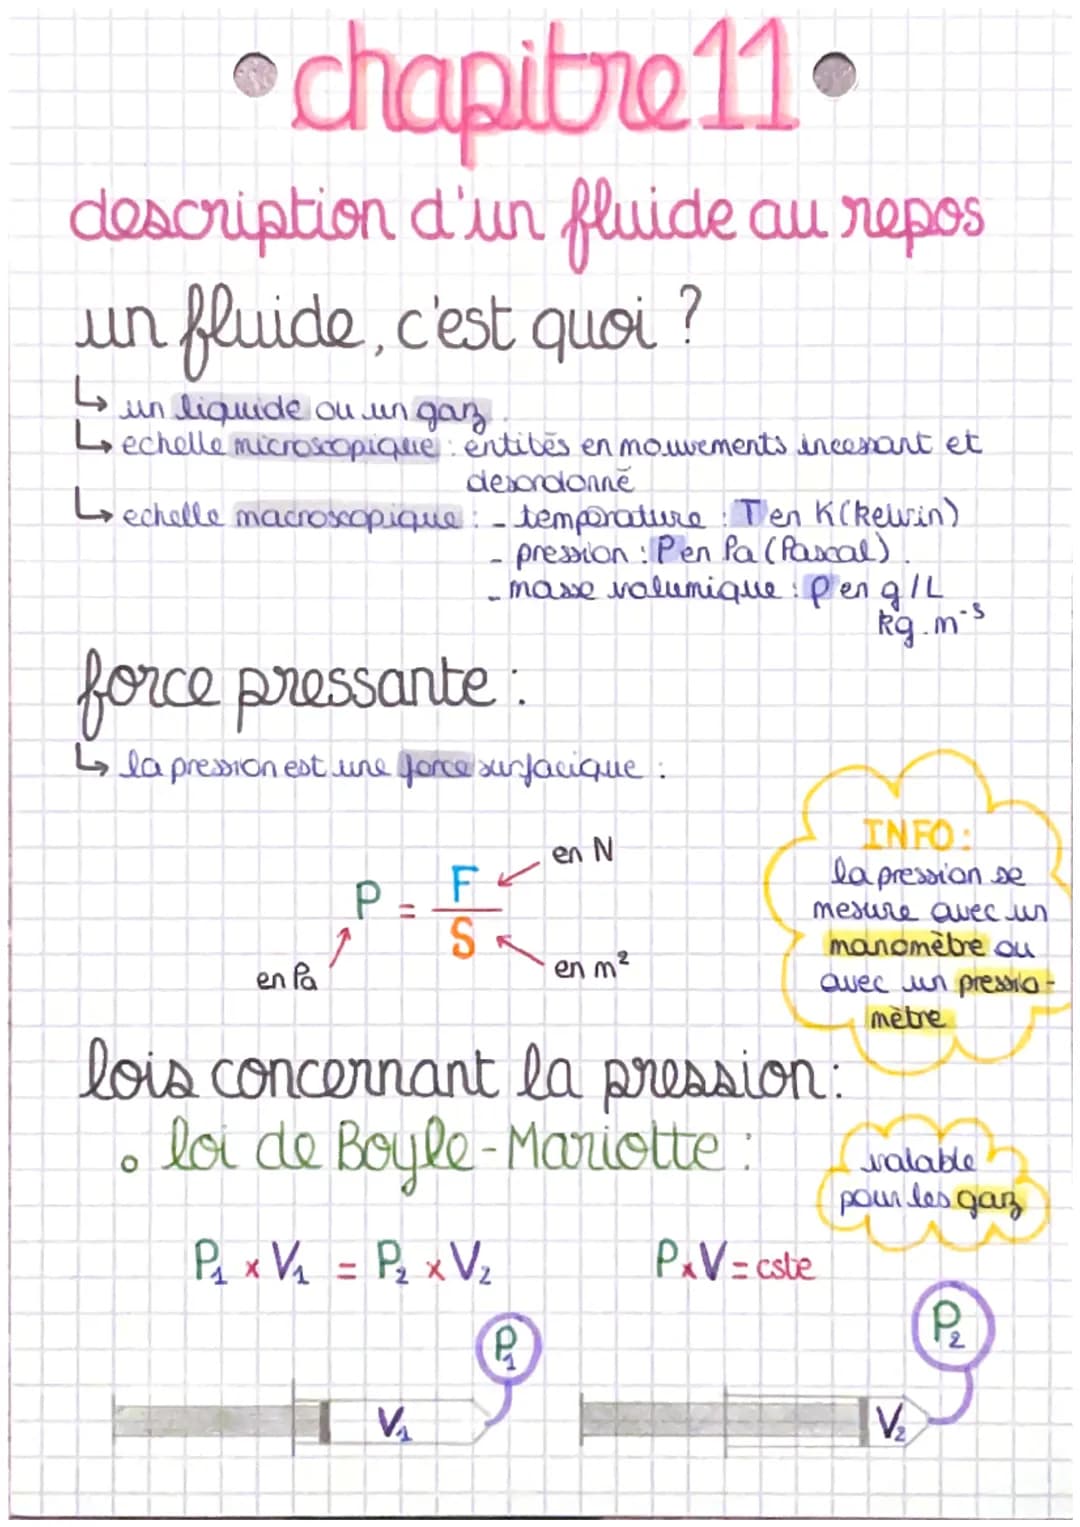 • chapitre 11 •
description d'un fluide au repos
un fluide, c'est quoi ?
↳ un liquide ou un gaz.
↳ echelle microscopique : entités en mouvements incessant et
desordonné
↳ echelle macroscopique : - température : T en K (kelvin)
- pression : P en Pa (Pascal).
- masse volumique : ρ en g/L
kg.m⁻³
force pressante :
↳ la pression est une force surfacique :
en N
P = F / S
en Pa
en m²
INFO :
la pression se
mesure avec un
manomètre ou
avec un pressio-
mètre
lois concernant la pression :
• loi de Boyle-Mariotte :
valable
pour les gaz
P₁ × V₁ = P₂ × V₂
P×V = cste
P₁
P₂
V₁
V₂